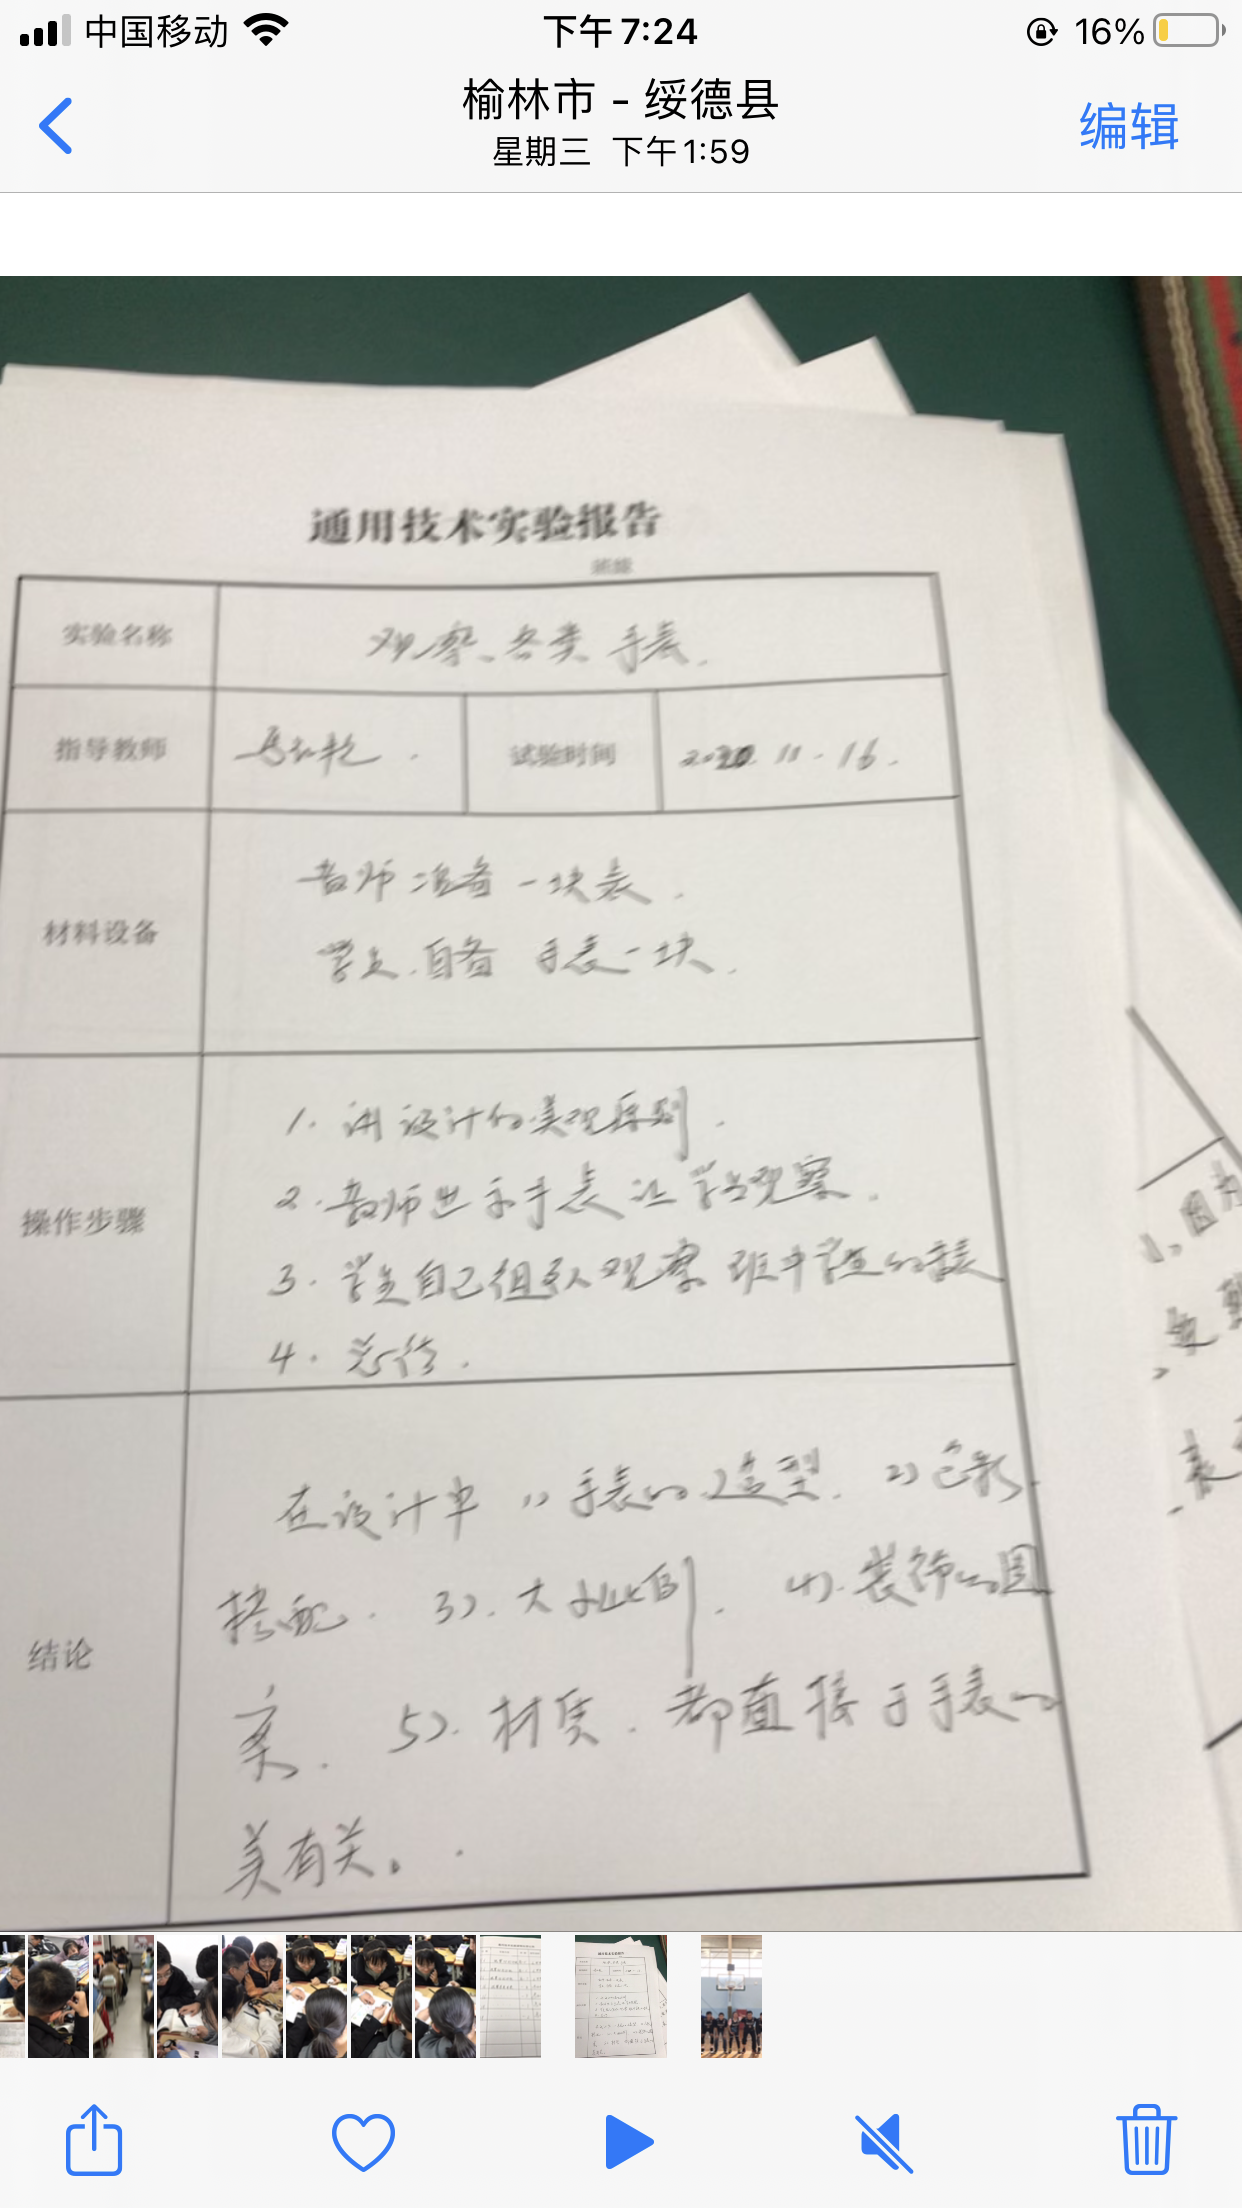 中国移动 下午7:24 16%
榆林市 - 绥德县
星期三 下午1:59
编辑
通用技术实验报告
实验名称 观察各类手表.
指导教师 试验时间 11.16.
材料设备
教师准备一块表.
学生自备 手表一块.
操作步骤
1. 讲设计的美观原则.
2. 教师出示手表让学生观察.
3. 学生自己组队观察班中学生的手表
4. 总结.
结论
在设计中 1) 手表的造型. 2) 色彩
搭配. 3). 大小比例. 4). 装饰的图
案. 5). 材质. 都直接于手表的
美有关。